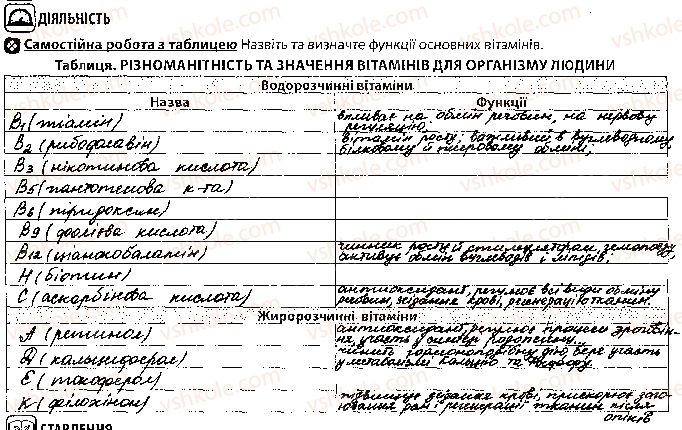 ДІЯЛЬНІСТЬ
Самостійна робота з таблицею Назвіть та визначте функції основних вітамінів.
Таблиця. РІЗНОМАНІТНІСТЬ ТА ЗНАЧЕННЯ ВІТАМІНІВ ДЛЯ ОРГАНІЗМУ ЛЮДИНИ
Водорозчинні вітаміни
Назва Функції
В1 (тіамін) впливає на обмін речовин, на нервову
регуляцію.
В2 (рибофлавін) вітамін росту, важливий в вуглеводному,
білковому й жировому обміні;
В3 (нікотинова кислота)
В5 (пантотенова к-та)
В6 (піридоксин)
В9 (фолієва кислота)
В12 (ціанокобаламін) чинник росту й стимулятором
активує обмін вуглеводів і ліпідів;
Н (біотин)
С (аскорбінова кислота) антиоксидант, регулює всі види обміну
речовин, зсідання крові, регенерацію тканин.
Жиророзчинні вітаміни
А (ретинол) антиоксидант, регулює процеси
участь у синтезі родопсину.
Д (кальциферол) чинить гормоноподібну дію, бере участь
у метаболізмі кальцію та фосфору.
Е (токоферол)
К (філохінон) підвищує зсідання крові, прискорює заго-
ювання ран і регенерації тканин після
опіків
СТАВЛЕННЯ
vshkole.com